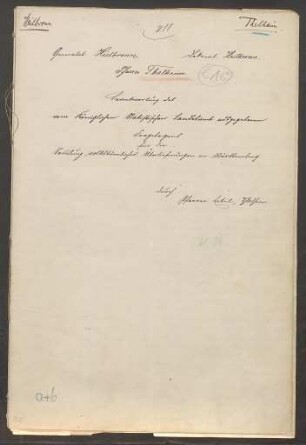 Heilbronn
Thalheim
Oberamt Heilbronn.
Dekanat Heilbronn.
Pfarrei Thalheim
Beantwortung des
vom Königlichen Statistischen Landesamt ausgegebenen
Fragebogens
zur
Sammlung volkstümlicher Überlieferungen in Württemberg
durch
Pfarrer
Thalheim
a+b